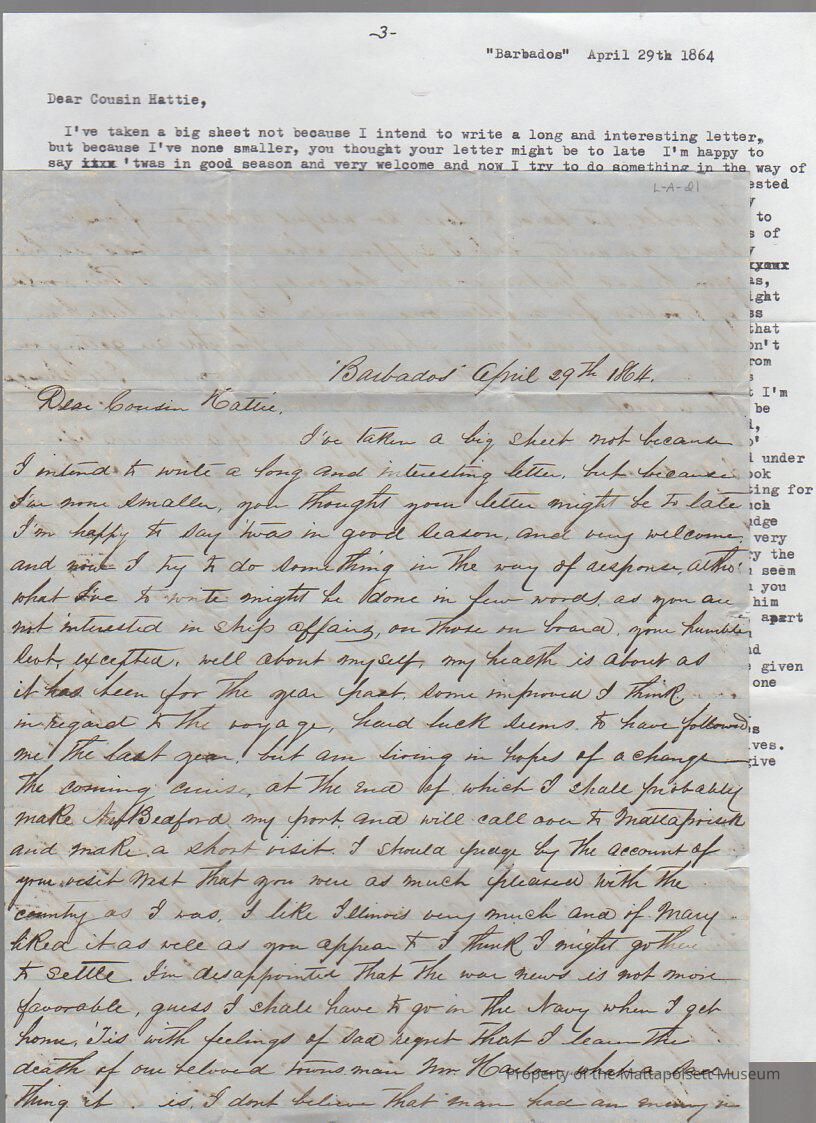 -3-
"Barbados" April 29th 1864
Dear Cousin Hattie,
I've taken a big sheet not because I intend to write a long and interesting letter,
but because I've none smaller, you thought your letter might be to late I'm happy to
say 'twas in good season and very welcome and now I try to do something in the way of
ested
y
to
s of
y
as,
ight
ss
that
on't
rom
s
t I'm
be
d,
o'
d under
ook
ting for
nch
udge
very
ry the
n seem
n you
him
e apart
nd
e given
one
es
ives.
give
L-A-21
"Barbados" April 29th 1864.
Dear Cousin Hattie,
I've taken a big sheet not because
I intend to write a long and interesting letter, but because
I've none smaller, you thought your letter might be to late
I'm happy to say 'twas in good season, and very welcome,
and now I try to do something in the way of response, altho'
what I've to write might be done in few words, as you are
not interested in ship affairs, or those on board, your humble
Servt, excepted, well about myself, my health is about as
it has been for the year past, some improved I think
in regard to the voyage, hard luck seems to have followed
me the last year, but am living in hopes of a change
the coming cruise, at the end of which I shall probably
make New Bedford my port, and will call over to Mattapoisett
and make a short visit. I should judge by the account of
your visit West that you were as much pleased with the
country as I was, I like Illinois very much and if Mary
liked it as well as you appear to I think I might go there
to settle. I'm disappointed that the war news is not more
favorable, guess I shall have to go in the Navy when I get
home, 'Tis with feelings of sad regret that I learn the
death of our beloved townsman Mr Harlow what a
thing it is, I don't believe that man had an enemy in
Property of the Mattapoisett Museum